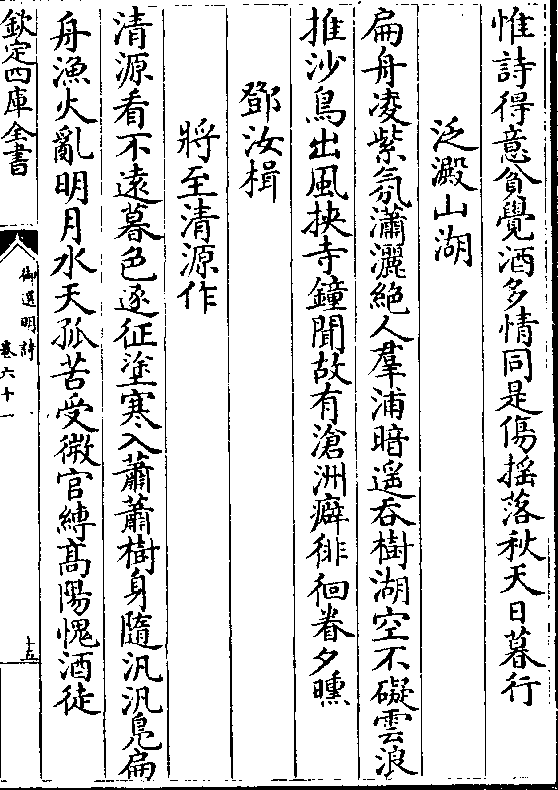 惟詩得意貧覺酒多情同是傷摇落秋天日暮行
泛澱山湖
扁舟凌紫氛瀟灑絶人羣浦暗遥吞樹湖空不礙雲浪
推沙鳥出風挾寺鐘聞故有滄洲癖徘徊眷夕曛
鄧汝楫
將至清源作
清源看不遠暮色逐征塗寒入蕭蕭樹身隨汎汎鳬扁
舟漁火亂明月水天孤苦受微官縛髙陽愧酒徒
欽定四庫全書
御選明詩
卷六十一
十五